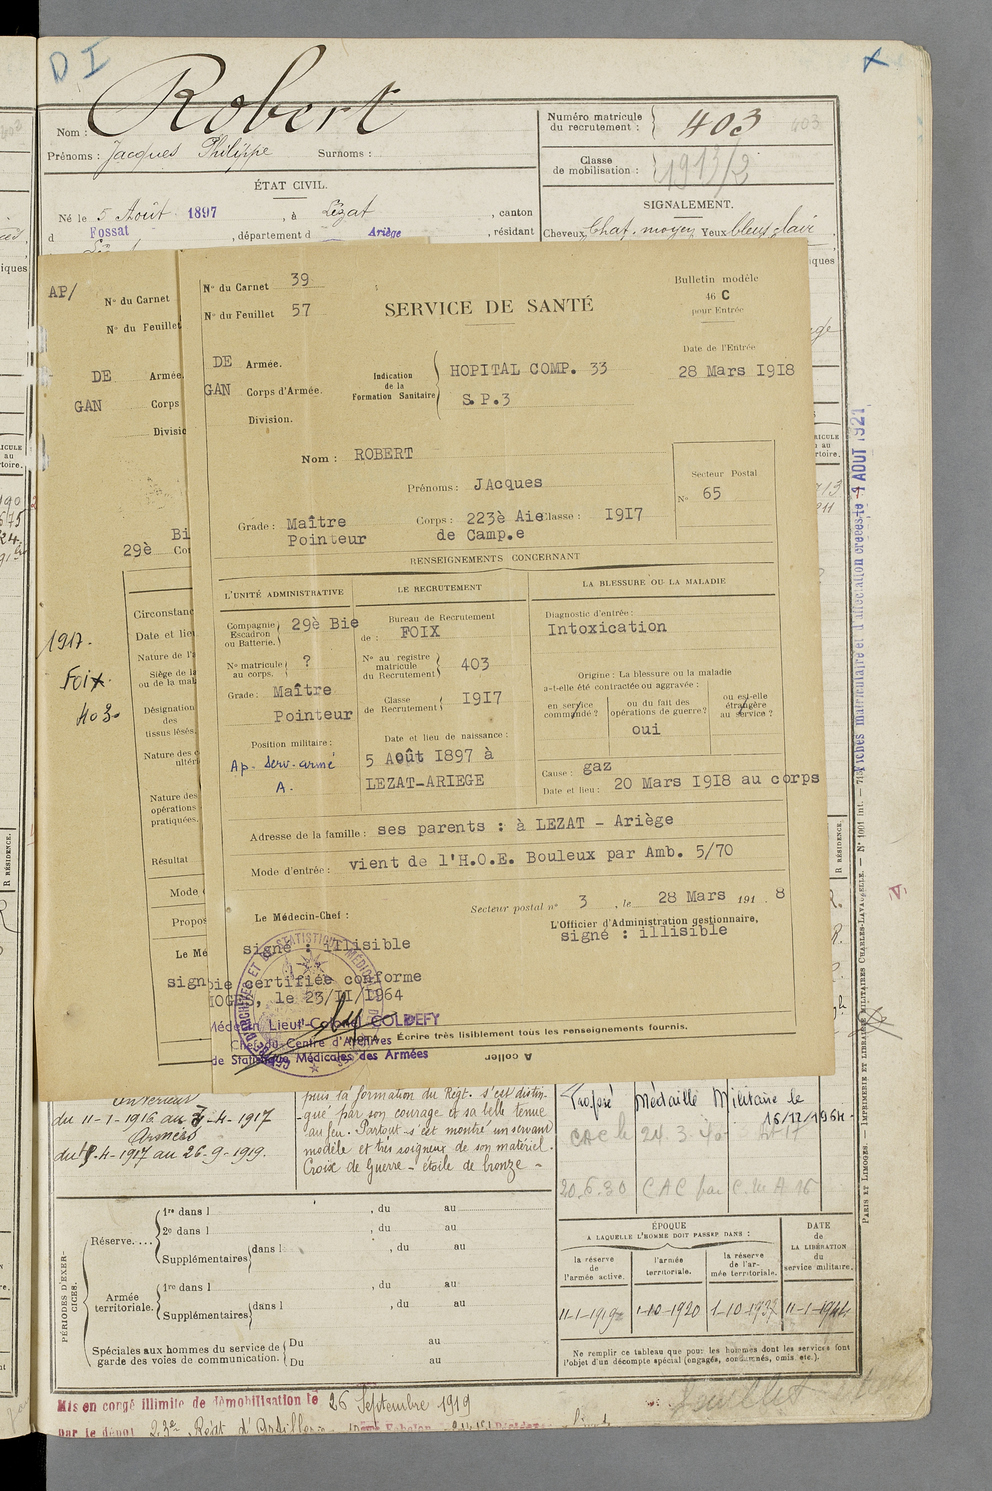 D I
Robert
Nom :
Prénoms : Jacques Philippe Surnoms :
Numéro matricule du recrutement : 403
403
Classe de mobilisation : 1913/2
ÉTAT CIVIL.
Né le 5 Août 1897, à Lézat, canton
d Fossat, département d Ariège, résidant
SIGNALEMENT.
Cheveux Chat. moyen Yeux bleus clair
AP/
N° du Carnet
N° du Feuillet
DE Armée.
GAN Corps
Divisio
Bi
29è Co
Circonstanc
Date et lie
Nature de l'a
Siège de la
ou de la mal
Désignation
des
tissus lésés.
Nature des
opérations
pratiquées.
Résultat
Mode
Propos
Le Mé
sign
1917.
Foix
403
N° du Carnet 39
N° du Feuillet 57
SERVICE DE SANTÉ
Bulletin modèle
46 C
pour Entrée
DE Armée.
GAN Corps d'Armée.
Division.
Indication
de la
Formation Sanitaire
HOPITAL COMP. 33
S.P.3
Date de l'Entrée
28 Mars 1918
Nom : ROBERT
Prénoms : JAcques
Secteur Postal
N° 65
Grade : Maître
Pointeur
Corps : 223è Aie Classe : 1917
de Camp.e
RENSEIGNEMENTS CONCERNANT
L'UNITÉ ADMINISTRATIVE
Compagnie
Escadron
ou Batterie.
29è Bie
N° matricule
au corps.
?
Grade : Maître
Pointeur
Position militaire :
Ap. serv. armé
A.
LE RECRUTEMENT
Bureau de Recrutement
de : FOIX
N° au registre
matricule
du Recrutement
403
Classe
de Recrutement
1917
Date et lieu de naissance :
5 Août 1897 à
LEZAT-ARIEGE
LA BLESSURE OU LA MALADIE
Diagnostic d'entrée :
Intoxication
Origine : La blessure ou la maladie
a-t-elle été contractée ou aggravée :
en service
commandé ?
ou du fait des
opérations de guerre?
oui
ou est-elle
étrangère
au service ?
Cause : gaz
Date et lieu : 20 Mars 1918 au corps
Adresse de la famille : ses parents : à LEZAT - Ariège
Mode d'entrée : vient de l'H.O.E. Bouleux par Amb. 5/70
Secteur postal n° 3, le 28 Mars 191 8
Le Médecin-Chef :
signé : illisible
L'Officier d'Administration gestionnaire,
signé : illisible
pie certifiée conforme
IOGES, le 23/II/1964
Médecin Lieut-Colonel COLDEFY
Chef du Centre d'Archives
de Statistique Médicales des Armées
Écrire très lisiblement tous les renseignements fournis.
A coller
intérieur
du 11-1-1916 au 7-4-1917
Armées
du 8-4-1917 au 26-9-1919.
puis la formation du Régt. s'est distin-
gué par son courage et sa belle tenue
au feu. Partout s'est montré un servant
modèle et très soigneux de son matériel.
Croix de Guerre - étoile de bronze -
Proposé Médaille Militaire le
16/12/1964
20.6.30 CAC par C.M.A 16
PÉRIODES D'EXERCICES.
Réserve....
1re dans l , du au
2e dans l , du au
Supplémentaires dans l , du au
Armée
territoriale.
1re dans l , du au
Supplémentaires dans l , du au
Spéciales aux hommes du service de
garde des voies de communication.
Du au
Du au
ÉPOQUE
A LAQUELLE L'HOMME DOIT PASSER DANS :
DATE
de
LA LIBÉRATION
du
service militaire.
la réserve
de
l'armée active.
l'armée
territoriale.
la réserve
de l'ar-
mée territoriale.
11-1-1919
1-10-1920
1-10-1937
11-1-1944
Ne remplir ce tableau que pour les hommes dont les services font
l'objet d'un décompte spécial (engagés, condamnés, omis etc.).
Mis en congé illimité de démobilisation le 26 Septembre 1919
par le dépôt 23e Régt d'Artillerie
Fiches matriculaire et d'affectation créées le 9 AOUT 1921
PARIS ET LIMOGES. — IMPRIMERIE ET LIBRAIRIE MILITAIRES CHARLES-LAVAUZELLE. — N° 1001 int. —
R RÉSIDENCE.